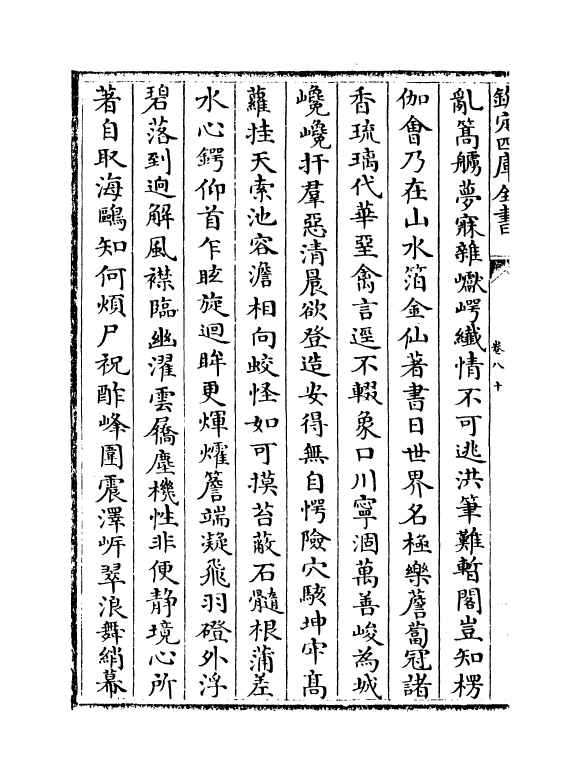 欽定四庫全書
卷八十
亂篙艣夢寐雜巘崿纖情不可逃洪筆難暫閣豈知楞
伽會乃在山水箔金仙著書日世界名極樂薝蔔冠諸
香琉璃代華堊禽言逕不輟象口川寧涸萬善峻為城
巉巉扞羣惡清晨欲登造安得無自愕險穴駭坤牢高
蘿挂天索池容澹相向蛟怪如可摸苔蔽石髓根蒲差
水心鍔仰首乍眩旋迴眸更煇㸌簷端凝飛羽磴外浮
碧落到迥解風襟臨幽濯雲屩塵機性非便静境心所
著自取海鷗知何煩尸祝酢峰圍震澤岍翠浪舞綃幕